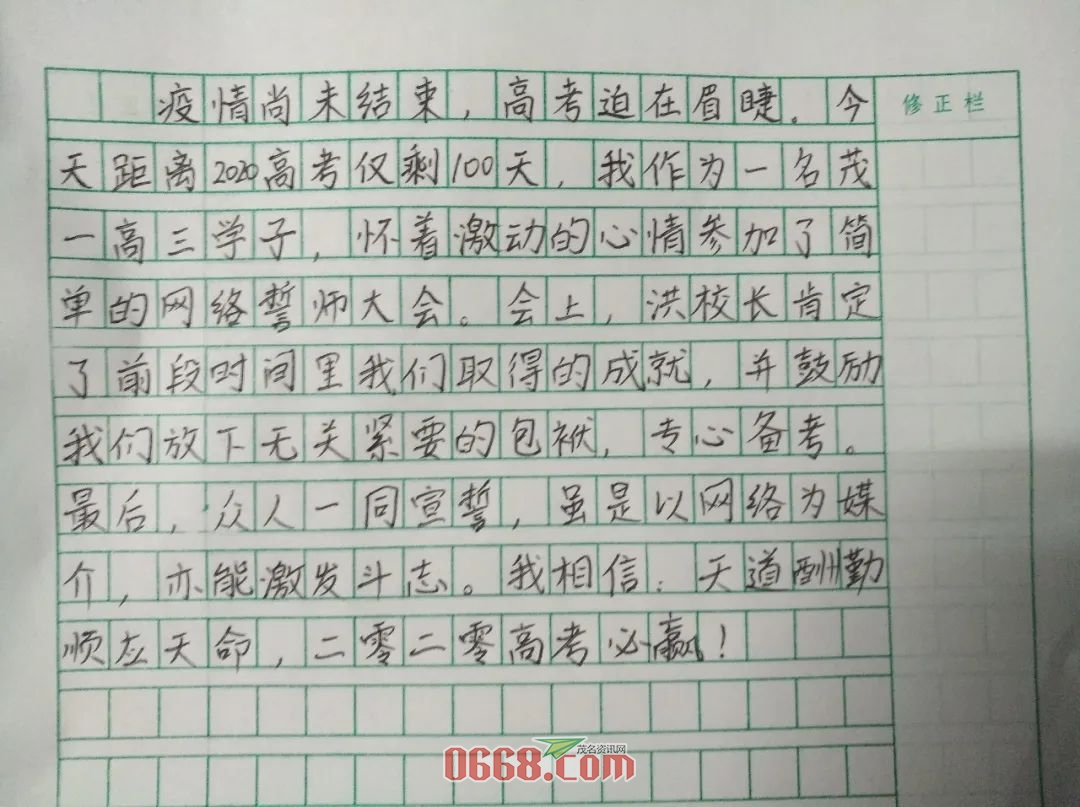 疫情尚未结束，高考迫在眉睫。今
修正栏
天距离2020高考仅剩100天，我作为一名茂
一高三学子，怀着激动的心情参加了简
单的网络誓师大会。会上，洪校长肯定
了前段时间里我们取得的成就，并鼓励
我们放下无关紧要的包袱，专心备考。
最后，众人一同宣誓，虽是以网络为媒
介，亦能激发斗志。我相信：天道酬勤
顺应天命，二零二零高考必赢！
茂名资讯网
0668.com